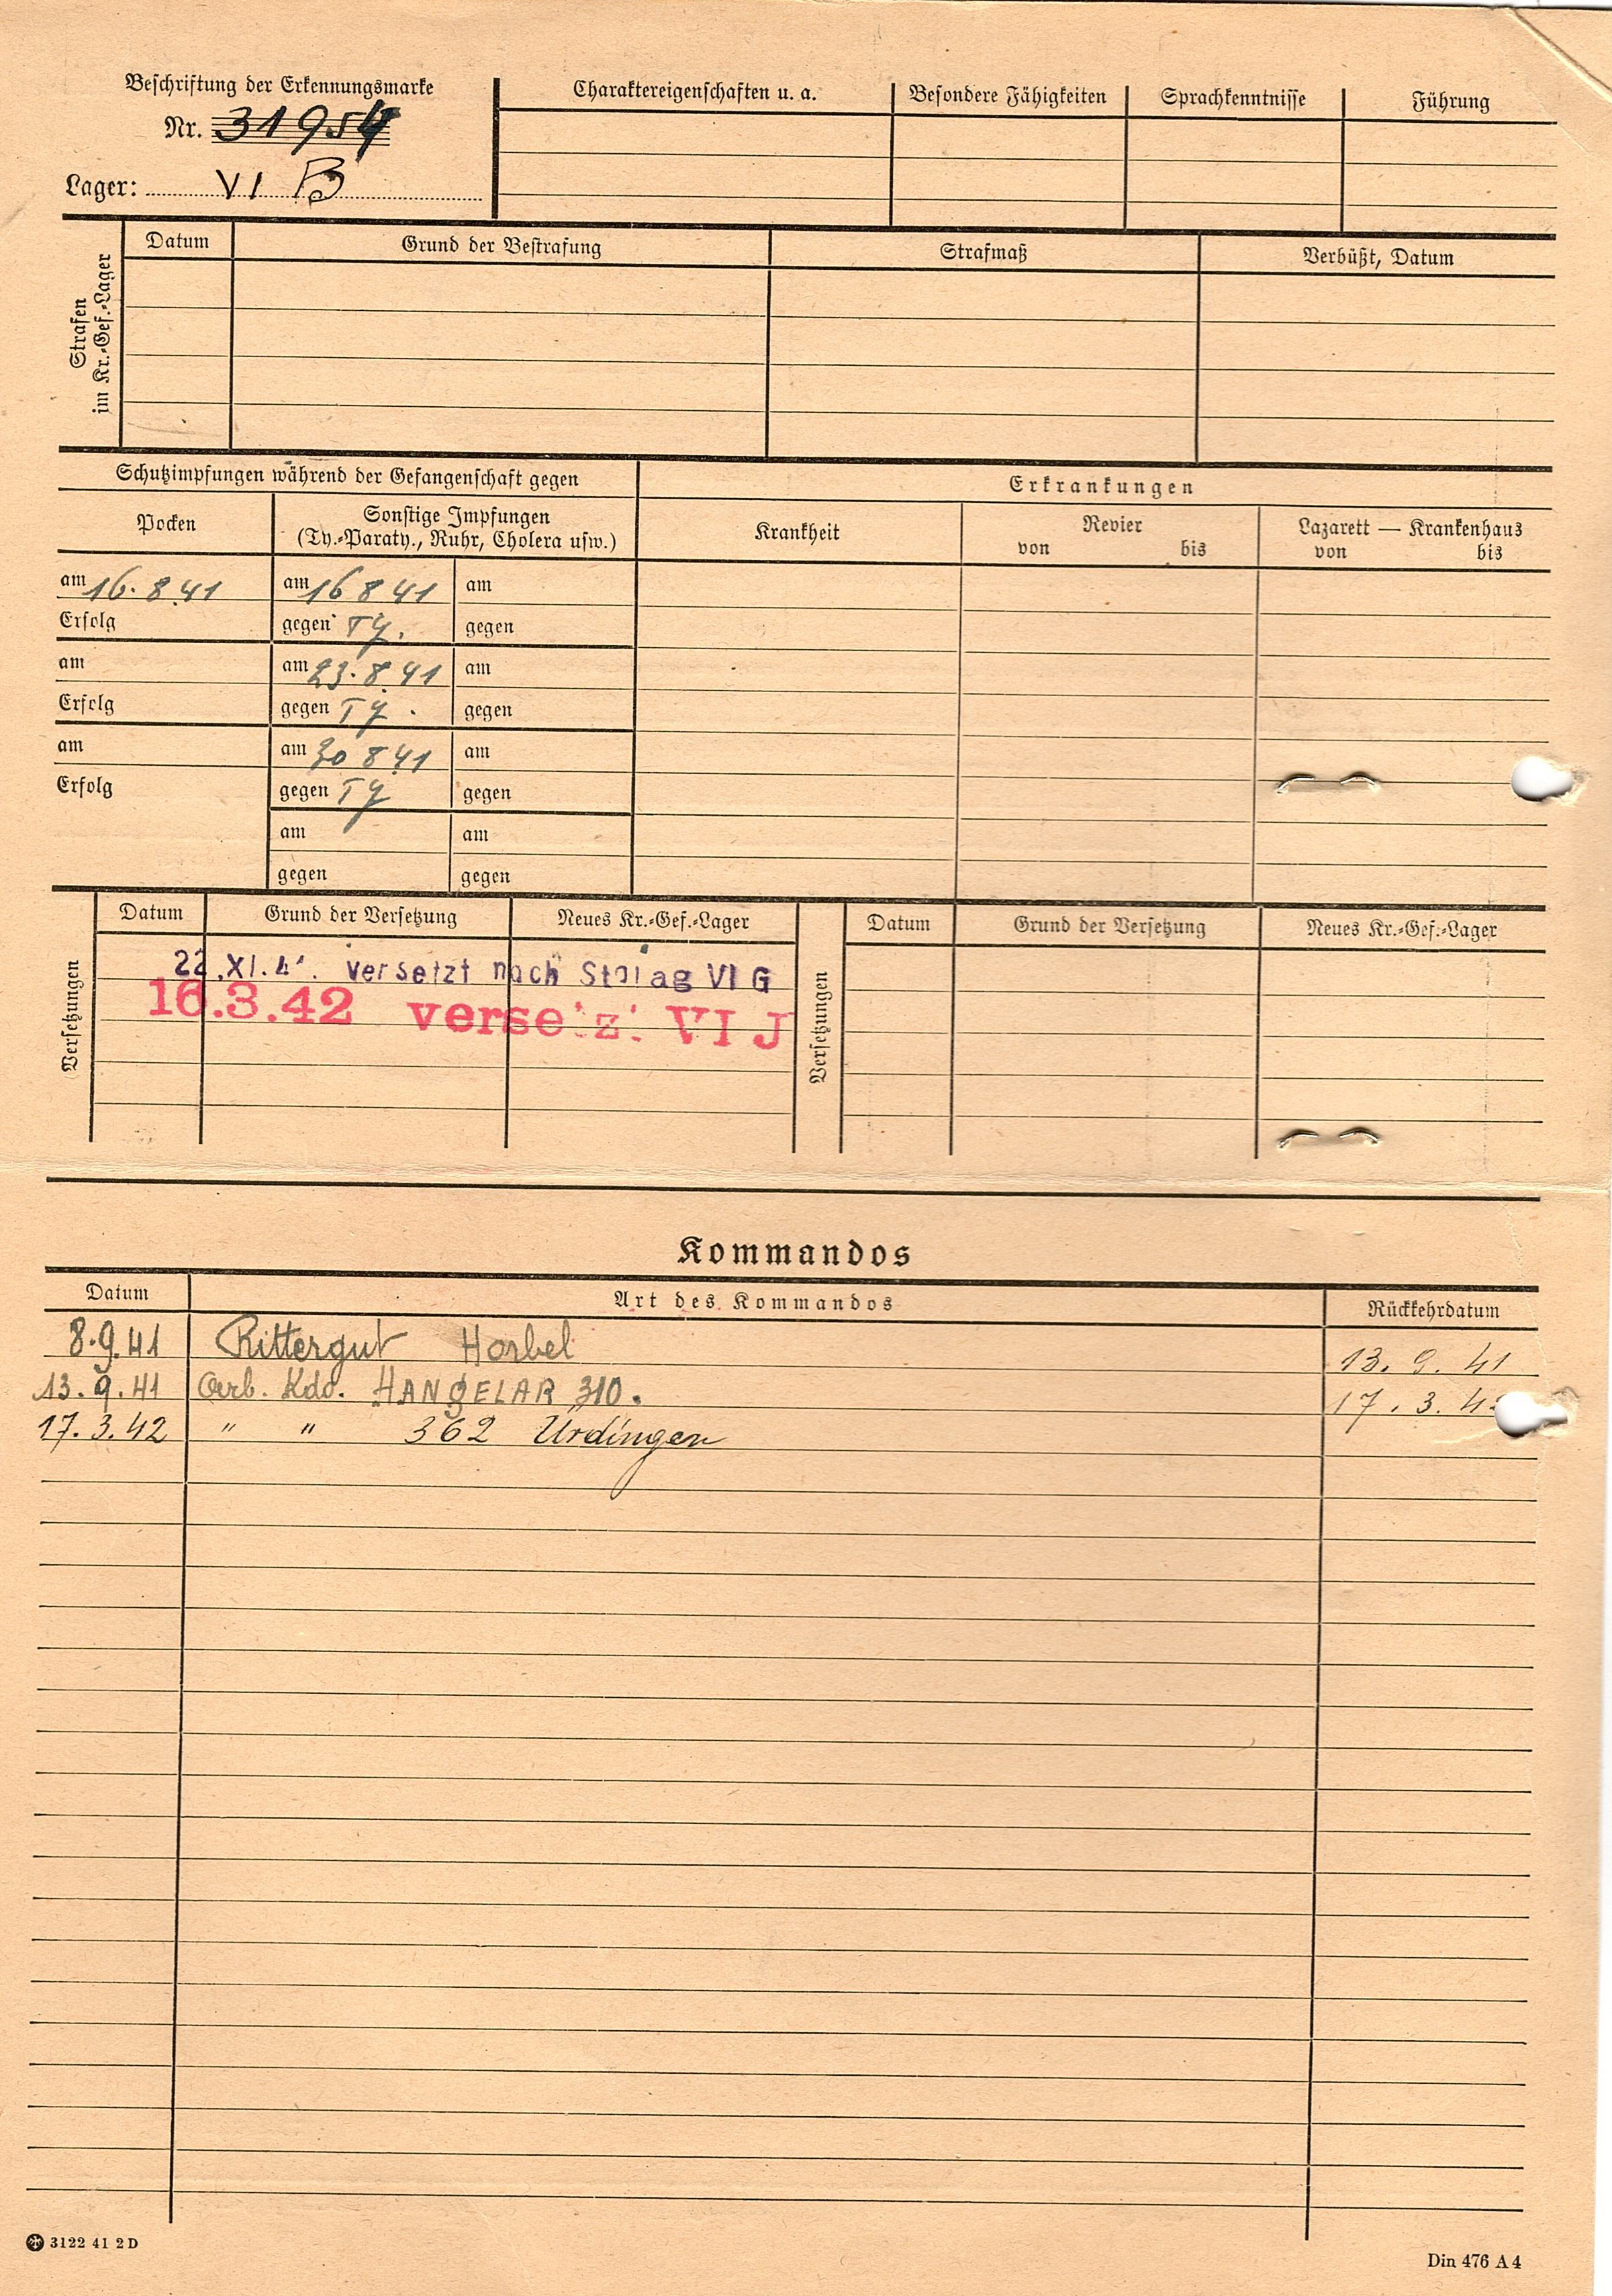 Beschriftung der Erkennungsmarke
Nr. 31954
Lager: VI B
Charaktereigenschaften u. a.
Besondere Fähigkeiten
Sprachkenntnisse
Führung
Strafen
im Kr.-Gef.-Lager
Datum
Grund der Bestrafung
Strafmaß
Verbüßt, Datum
Schutzimpfungen während der Gefangenschaft gegen
Erkrankungen
Pocken
Sonstige Impfungen
(Ty.-Paraty., Ruhr, Cholera usw.)
Krankheit
Revier
von bis
Lazarett — Krankenhaus
von bis
am 16.8.41 am 16 8 41 am
Erfolg gegen Ty. gegen
am am 23.8.41 am
Erfolg gegen Ty. gegen
am am 30 8 41 am
Erfolg gegen Ty gegen
am am
gegen gegen
Versetzungen
Datum Grund der Versetzung Neues Kr.-Gef.-Lager
22.XI.4 . versetzt nach Stalag VI G
16.3.42 versetzt VI J
Versetzungen
Datum Grund der Versetzung Neues Kr.-Gef.-Lager
Kommandos
Datum Art des Kommandos Rückkehrdatum
8.9.41 Rittergut Horbel 13.9.41
13.9.41 Arb. Kdo. HANGELAR 310. 17.3.42
17.3.42 " " 362 Ürdingen
3122 41 2 D
Din 476 A 4